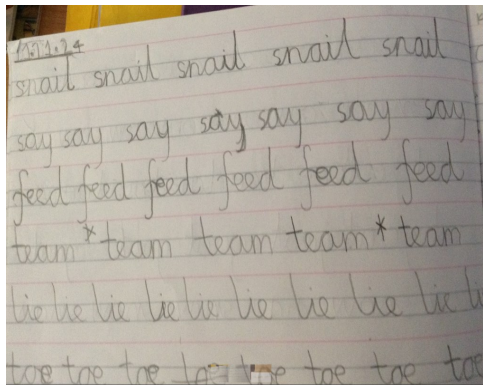 11.11.24
snail snail snail snail snail
say say say say say say say
feed feed feed feed feed feed
team * team team team * team
lie lie lie lie lie lie lie lie lie
toe toe toe toe toe toe toe